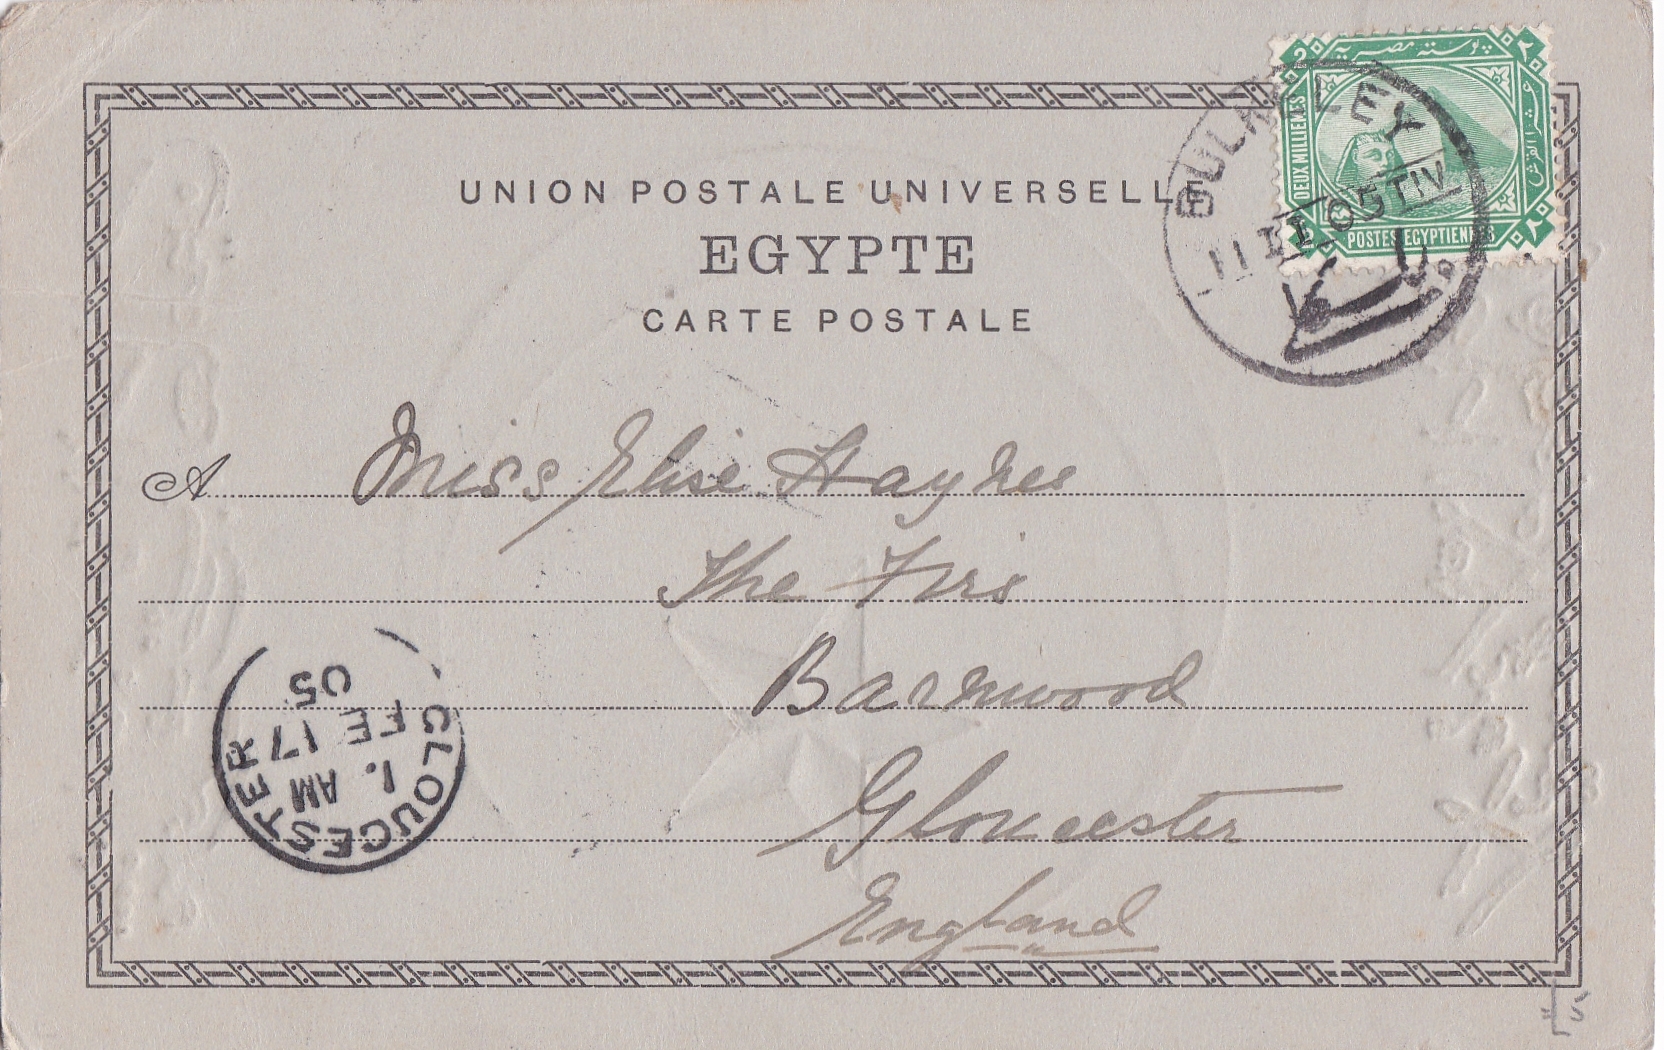 UNION POSTALE UNIVERSELLE
EGYPTE
CARTE POSTALE
2 بوسته مصريه ٢
DEUX MILLIEMES
POSTES EGYPTIENNES
BULKELEY
11 II 05 T IV
A Miss Elsie Haynes
The Firs
Barnwood
Gloucester
England
GLOUCESTER
1. AM
FE 17
05